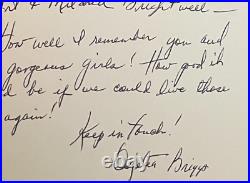 & Mildred Brightwell —
How well I remember you and
gorgeous girls! How good it
d be if we could live those
again!
Keep in touch!
Briggs